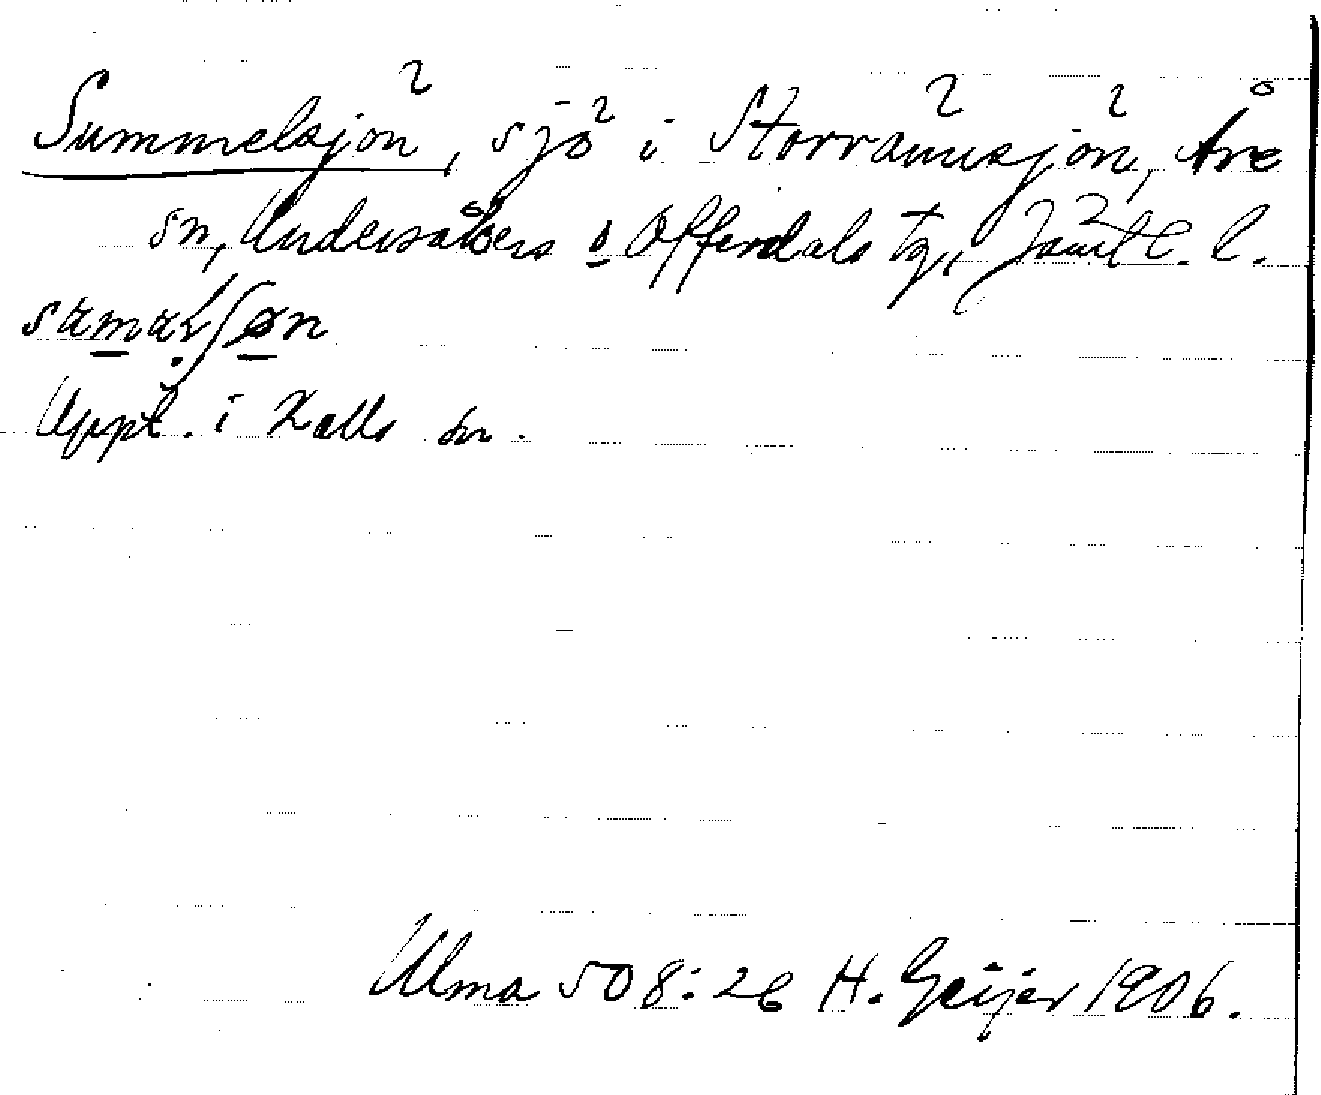 Summelsjön, sjö i Storrännsjön, Åre
sn, Undersåkers o Offerdals tg., Jämtl. l.
Uppt. i Kalls sn.
Ulma 508:26 H. Geijer 1906.